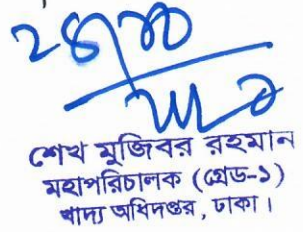 শেখ মুজিবর রহমান
মহাপরিচালক (গ্রেড-১)
খাদ্য অধিদপ্তর, ঢাকা।